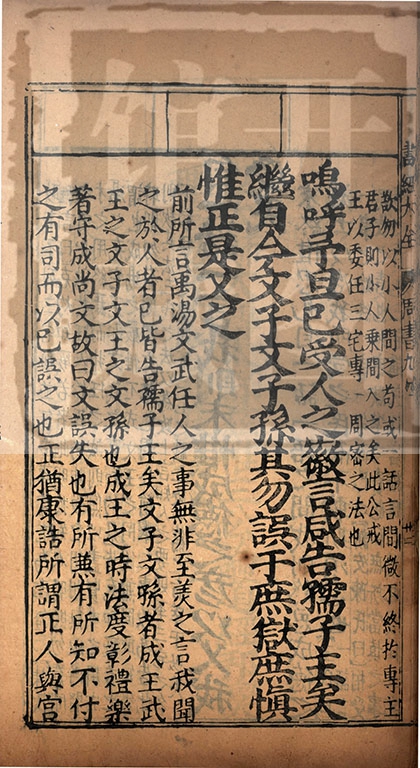 書經大全
周書九
敬勿以小人間之苟或一話一言間微不終於專主
君子則小人乘間入之矣此公戒
王以委任三宅專一周密之法也
嗚呼予旦已受人之徽言咸告孺子王矣
繼自今文子文孫其勿誤于庶獄庶慎
惟正是乂之
前所言禹湯文武任人之事無非至美之言我聞
之於人者已皆告孺子王矣文子文孫者成王武
王之文子文王之文孫也成王之時法度彰禮樂
著守成尚文故曰文誤失也有所兼有所知不付
之有司而以己誤之也正猶康誥所謂正人與宮